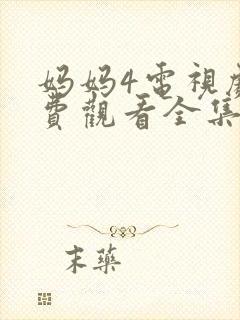 妈妈4电視
費觀看全集
末藥